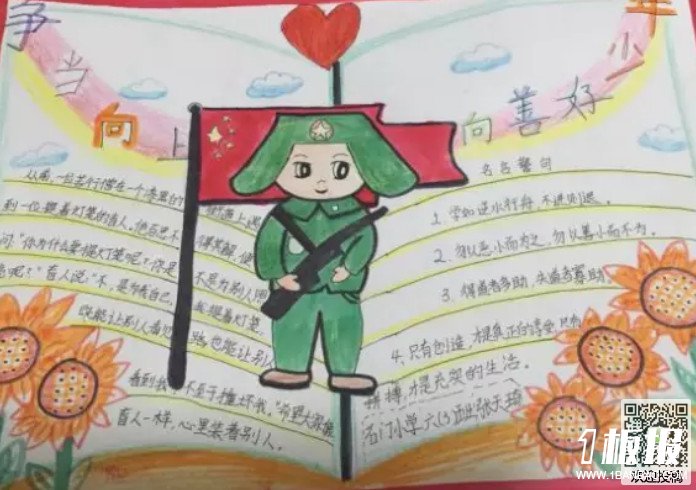 争当向上向善好少年
从前,一个苦行僧在一个漆黑的
到一位提着灯笼的盲人,他百思不得其解,便
问:"你为什么要提灯笼呢?你是
盲人说:"不,是为我自己, 不是为别人
我提着灯笼
既能让别人看见 路,也能让别人
看到我,不至于撞坏我。"希望大家像
盲人一样,心里装着别人。
名言警句
1、学如逆水行舟,不进则退。
2、勿以恶小而为之,勿以善小而不为。
3、得道者多助,失道者寡助。
4、只有创造,才是真正的享受,只有
拼搏,才是充实的生活。
石门小学 六(3)班
1板报
WWW.1BANBAO.COM
欢迎投稿